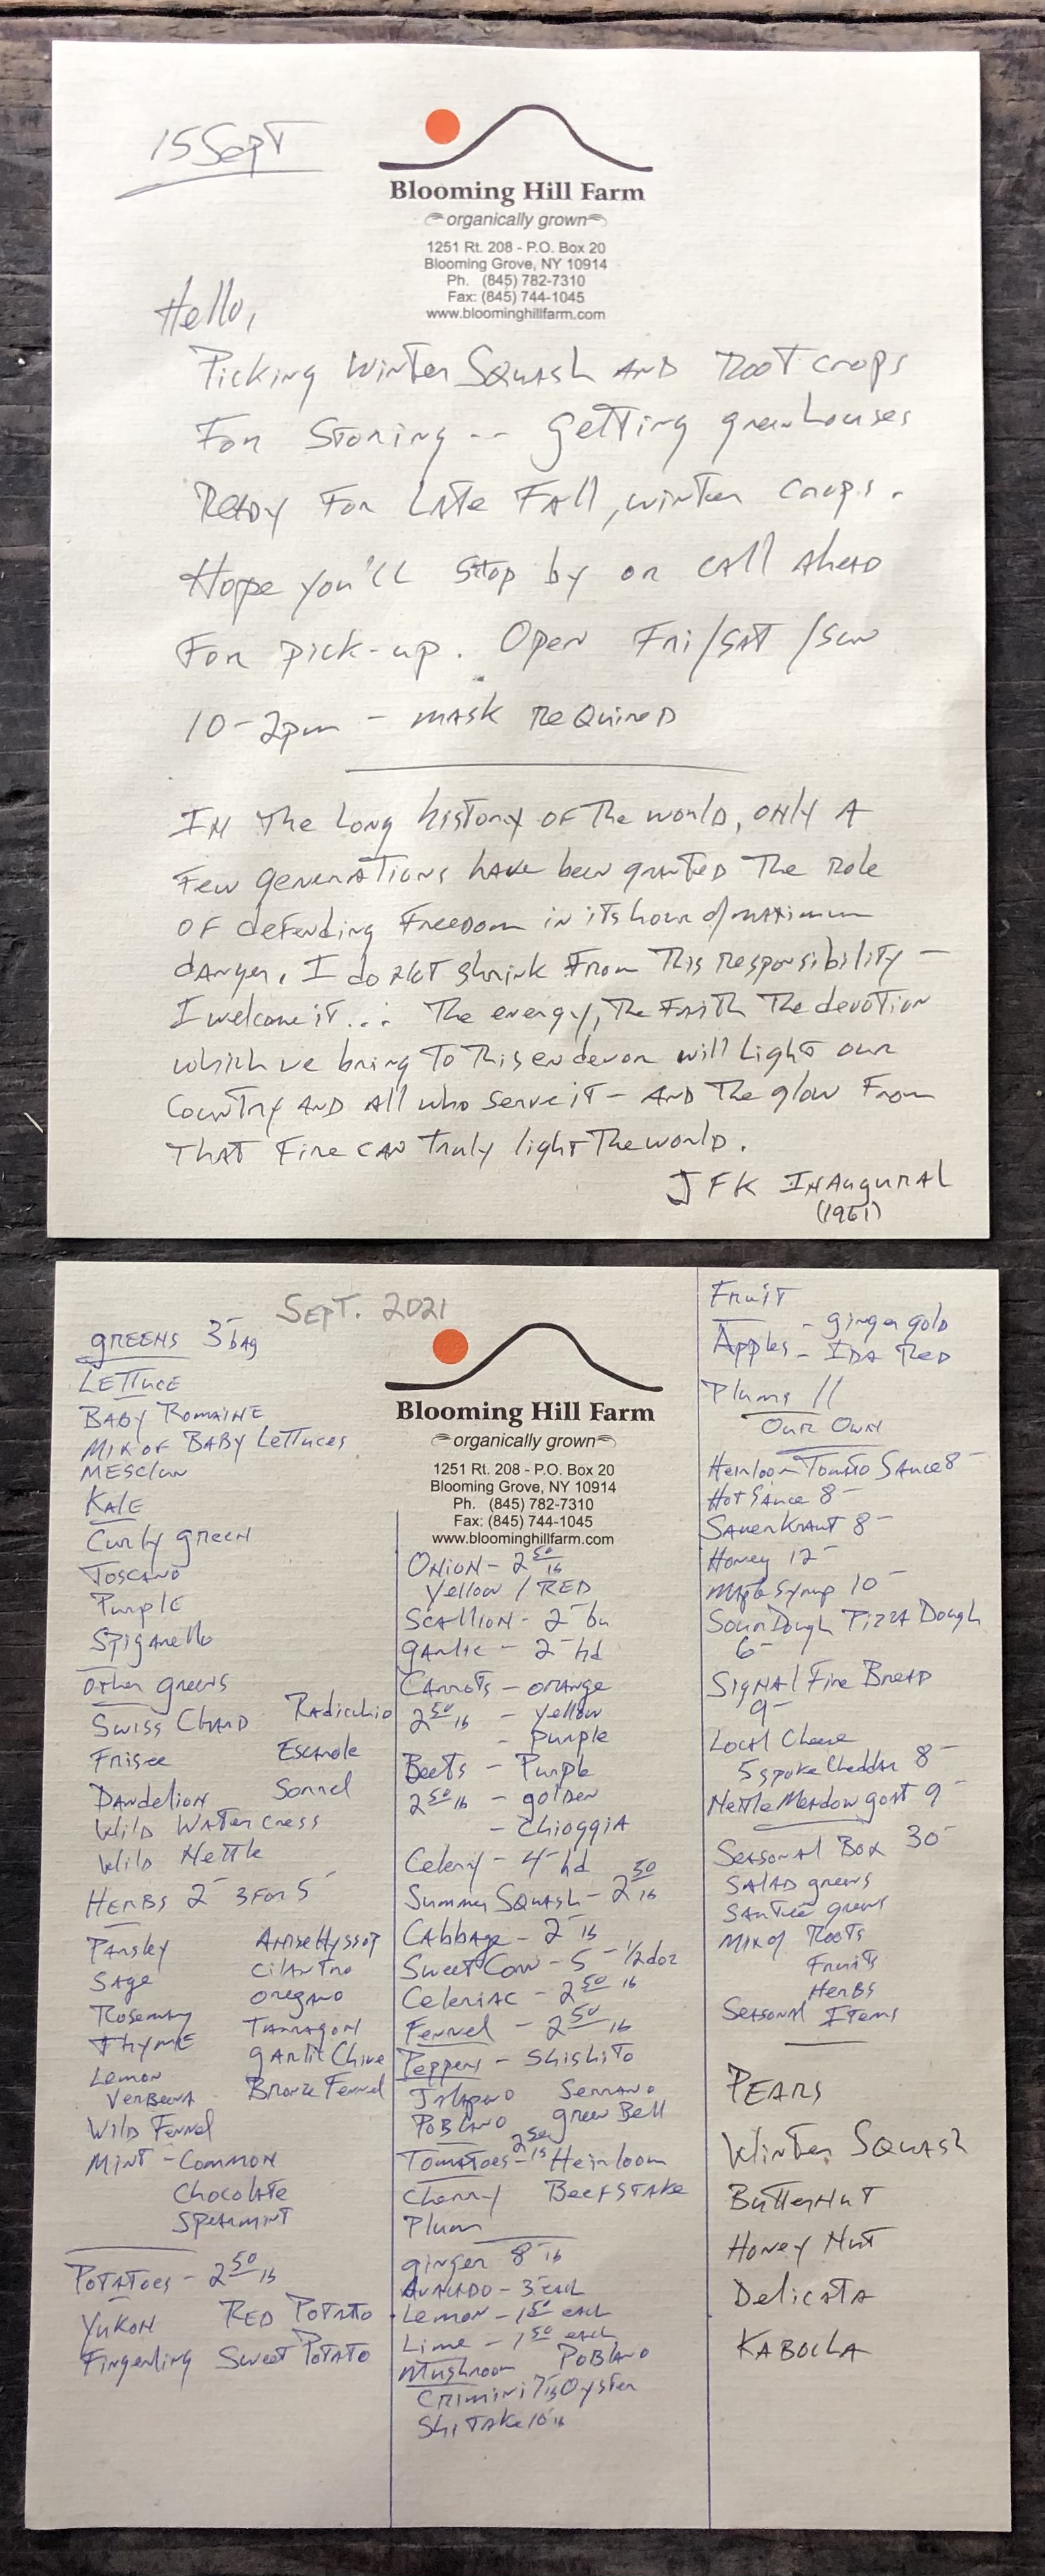 15 Sept
Blooming Hill Farm
organically grown
1251 Rt. 208 - P.O. Box 20
Blooming Grove, NY 10914
Ph. (845) 782-7310
Fax: (845) 744-1045
www.bloominghillfarm.com
Hello,
Picking Winter Squash AND Root crops
For Storing -- getting greenhouses
Ready For Late Fall, winter crops.
Hope you'll stop by or call AheAD
For pick-up. Open Fri/SAT/Sun
10-2pm - MASK ReQuireD
IN The Long history OF The worlD, only A
Few generATions have been granted The Role
OF defending FreeDom in its hour of mAximum
dAnger. I do not shrink From This Responsibility -
I welcome it... The energy, The Faith The devotion
which we bring To This endevor will Light our
Country AND All who serve it - AND The glow From
That Fire CAN Truly light The worlD.
JFK INAuguRAL
(1961)
SEPT. 2021
GREENS 3- bAg
LETTucE
BABY RomAiNE
Mix oF BABY LeTTuces
MESCluN
KALE
Curly greeN
ToscANo
PurplE
SpigArello
other greens
Swiss ChARD Radicchio
Frisee Escarole
DANDelion Sorrel
WilD WAter cress
WilD Nettle
HERBS 2- 3 For 5-
Parsley Anise Hyssop
SAge CilAntro
Rosemary oregano
ThymE TArragoN
Lemon gArlic Chive
VerBenA Bronze Fennel
WilD Fennel
MiNT - Common
ChocolAte
SpeArmint
PoTATOes - 2 50 lb
YukoN RED PotAto
Fingerling Sweet PotAto
Blooming Hill Farm
organically grown
1251 Rt. 208 - P.O. Box 20
Blooming Grove, NY 10914
Ph. (845) 782-7310
Fax: (845) 744-1045
www.bloominghillfarm.com
ONioN - 2 50 lb
Yellow / RED
ScAllioN - 2- bu
gArlic - 2- hd
CArroTs - orANge
2 50 lb - Yellow
- Purple
Beets - Purple
2 50 lb - golDen
- ChioggiA
Celery - 4- hd
Summer SquAsh - 2 50 lb
CAbbAge - 2- lb
Sweet Corn - 5- 1/2 doz
CeleriAc - 2 50 lb
Fennel - 2 50 lb
Peppers - ShishiTo
JAlApeno SerrAno
PoBlAno green Bell
Tomatoes - 2 50 lb Heirloom
Cherry BeefSTAke
Plum
ginger 8- lb
AvACADO - 3- each
Lemon - 1 50 each
Lime - 1 50 each
Mushroom PoBlAno
Crimini 7- lb Oyster
ShiTAke 10- lb
FruiT
Apples - ginger gold
- IDA ReD
Plums //
Our Own
Heirloom Tomato SAuce 8-
Hot SAuce 8-
SAuerkraut 8-
Honey 12-
Maple Syrup 10-
SourDough Pizza Dough
6-
SigNAl Fire BreAD
9-
Local Cheese
5 spoke Cheddar 8-
Nettle Meadow goAt 9-
SeAsonAl Box 30-
SAlAD greens
SAutee greens
Mix of Roots
Fruits
HerBs
SeAsonAl Items
PEARS
Winter SquAsh
ButterNuT
Honey Nut
DelicATA
KABOChA